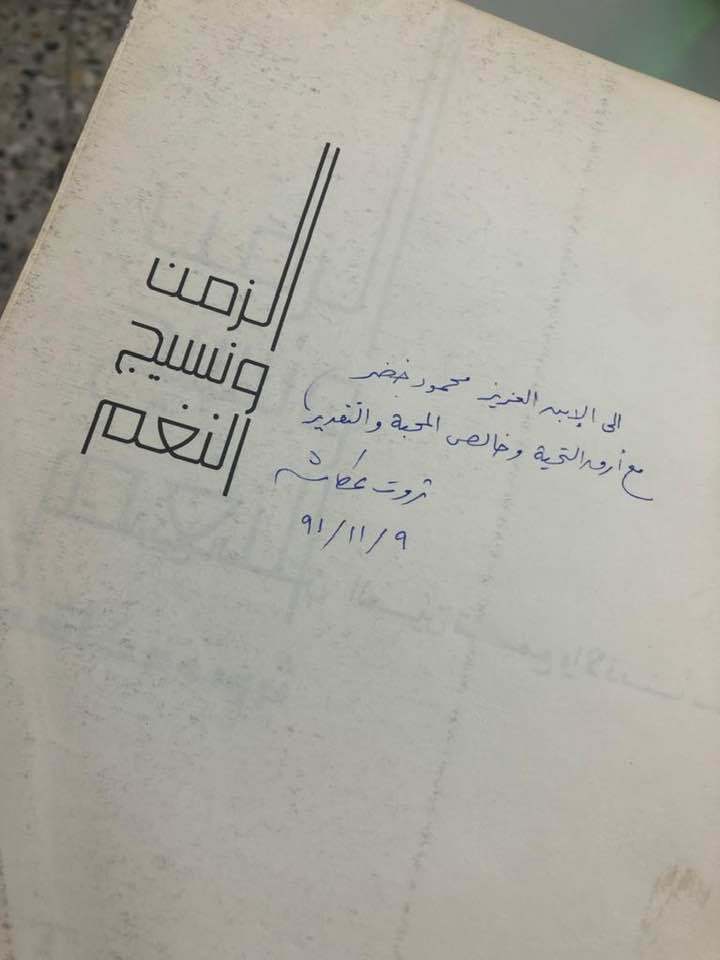 الزمن
ونسيج
النغم
الى الابن العزيز محمود خضر
مع أرق التحية وخالص المحبة والتقدير
ثروت عكاشه
٩١/١١/٩